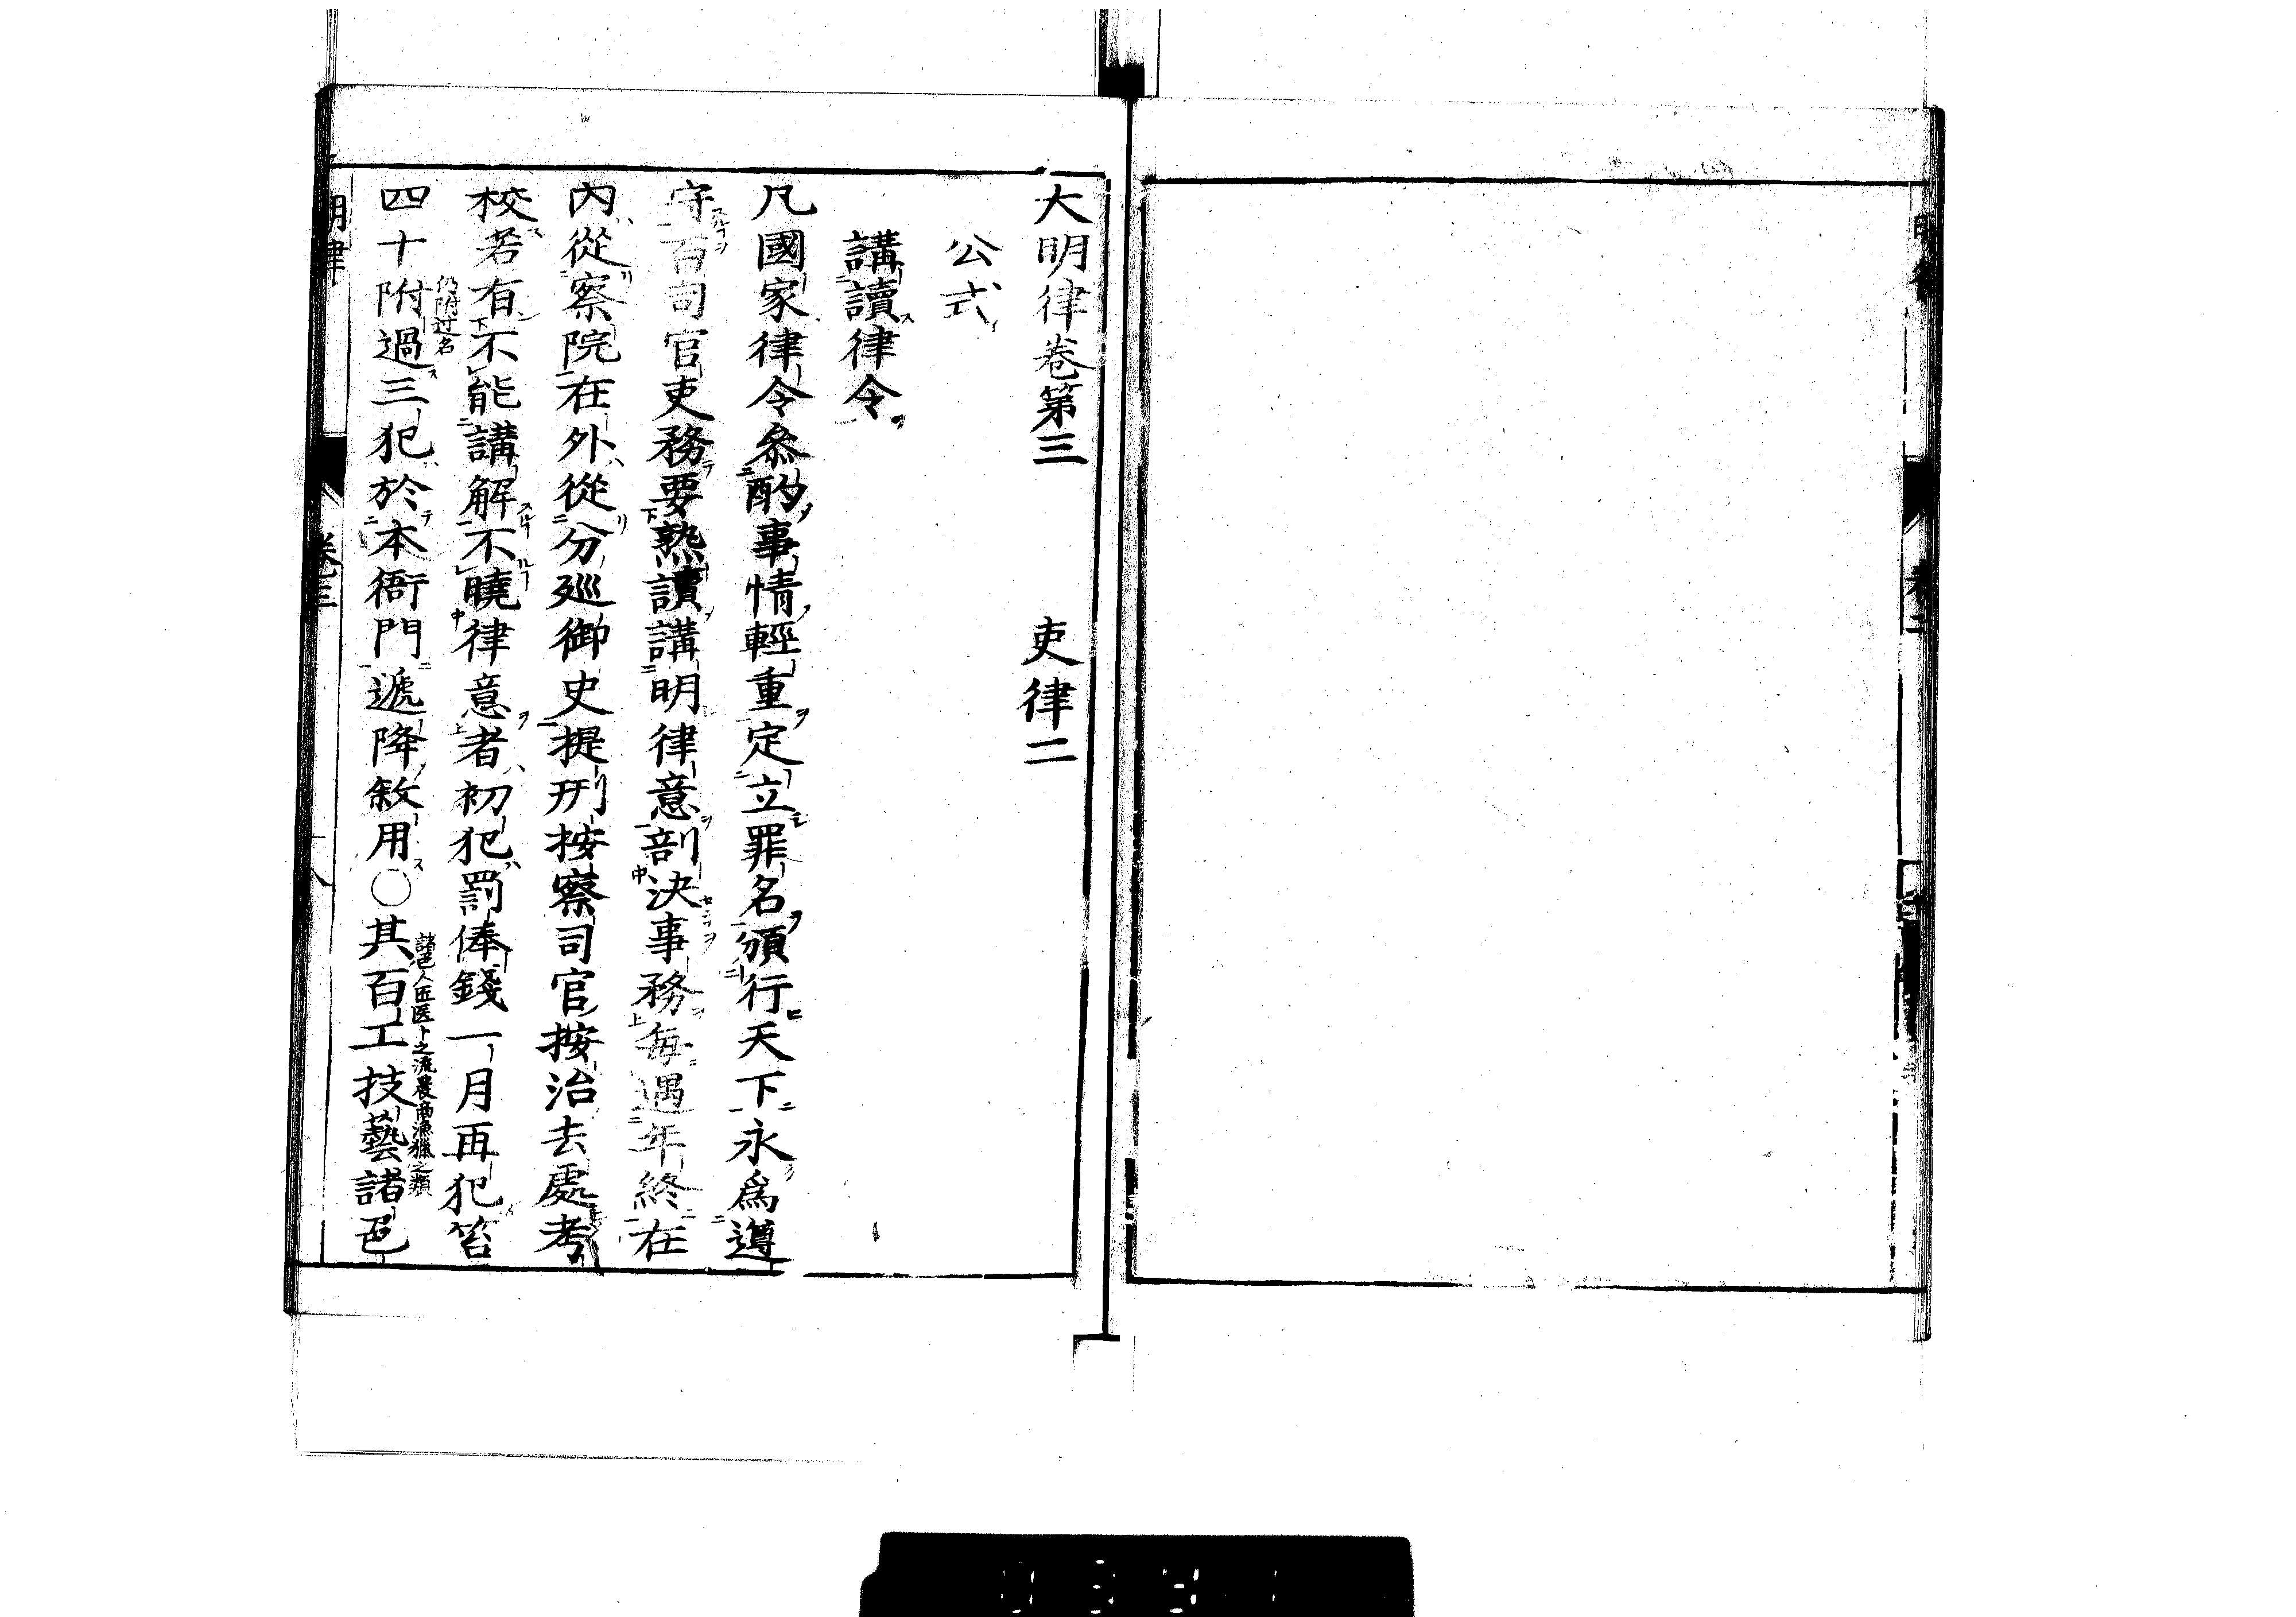 大明律卷第三　吏律二
公式
講讀律令
凡國家律令叅酌事情輕重定立罪名頒行天下永爲遵
守百司官吏務要熟讀講明律意剖決事務每遇年終在
內從察院在外從分廵御史提刑按察司官按治去處考
校若有不能講解不曉律意者初犯罰俸錢一月再犯笞
仍附过名
四十附過三犯於本衙門遞降敘用○其百工技藝諸色
諸色人匠医卜之流農商漁獵之類
明律　卷三